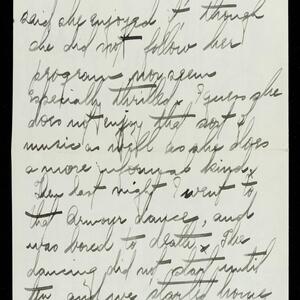 said she enjoyed it, though
she did not follow her
program nor seem
especially thrilled. I guess she
does not enjoy the sort of
music as well as she does
a more informal kind.
Then last night I went to
the Armour dance, and
was bored to death. The
dancing did not start until
ten and we started home